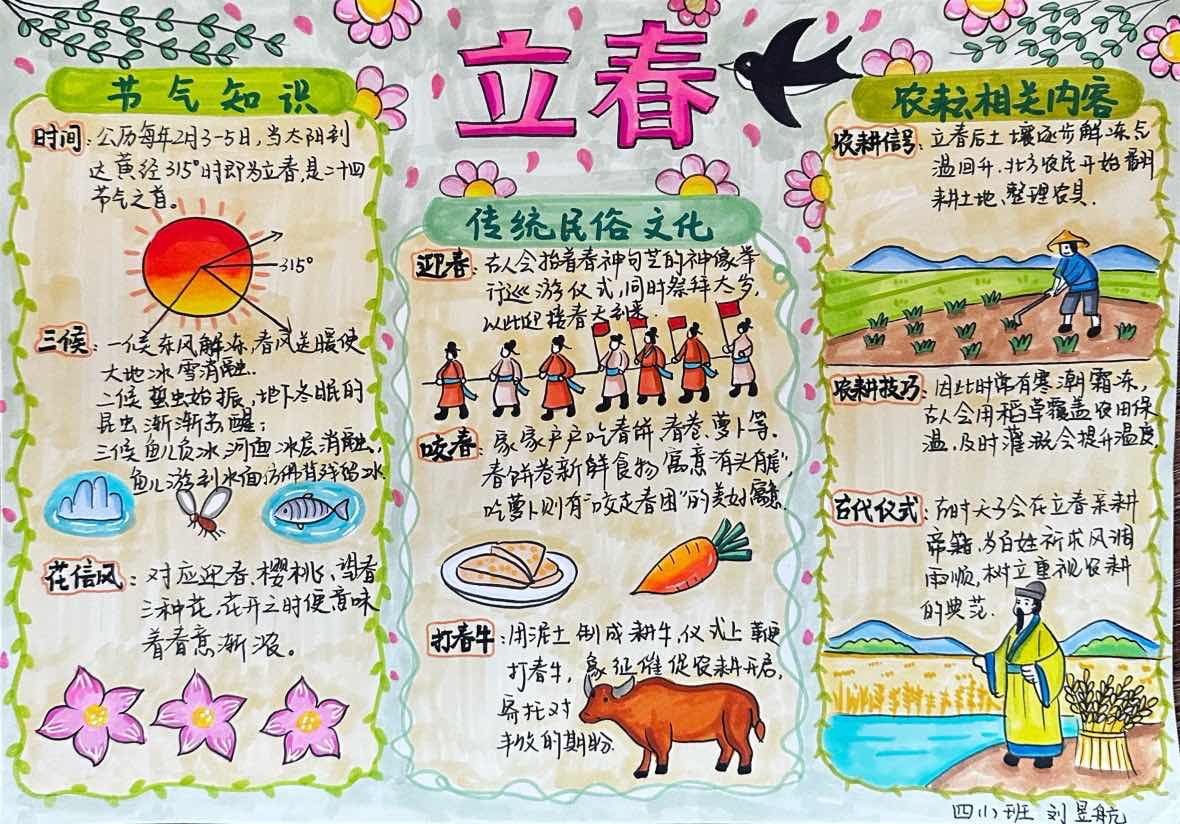 立春
节气知识
时间：公历每年2月3-5日，当太阳到
达黄经315°时即为立春，是二十四
节气之首。
315°
三候：一候东风解冻，春风送暖使
大地冰雪消融.
二候蛰虫始振，地下冬眠的
昆虫渐渐苏醒；
三候鱼儿负冰河面冰层消融，
鱼儿游到水面，仿佛背残留冰.
花信风：对应迎春、樱桃、望春
三种花，花开之时便意味
着春意渐浓。
传统民俗文化
迎春：古人会抬着春神句芒的神像举
行巡游仪式，同时祭拜太岁，
以此迎接春天到来.
咬春：家家户户吃春饼、春卷、萝卜等.
春饼卷新鲜食物寓意"有头有尾"，
吃萝卜则有"咬走春困"的美好寓意.
打春牛：用泥土制成耕牛，仪式上鞭
打春牛，象征催促农耕开启，
寄托对
丰收的期盼.
农耘相关内容
农耕信号：立春后土壤逐步解冻气
温回升，北方农民开始翻
耕土地、整理农具.
农耕技巧：因此时常有寒潮霜冻，
古人会用稻草覆盖农田保
温，及时灌溉会提升温度.
古代仪式：古时天子会在立春亲耕
帝籍，为百姓祈求风调
雨顺，树立重视农耕
的典范.
四小班 刘昱航